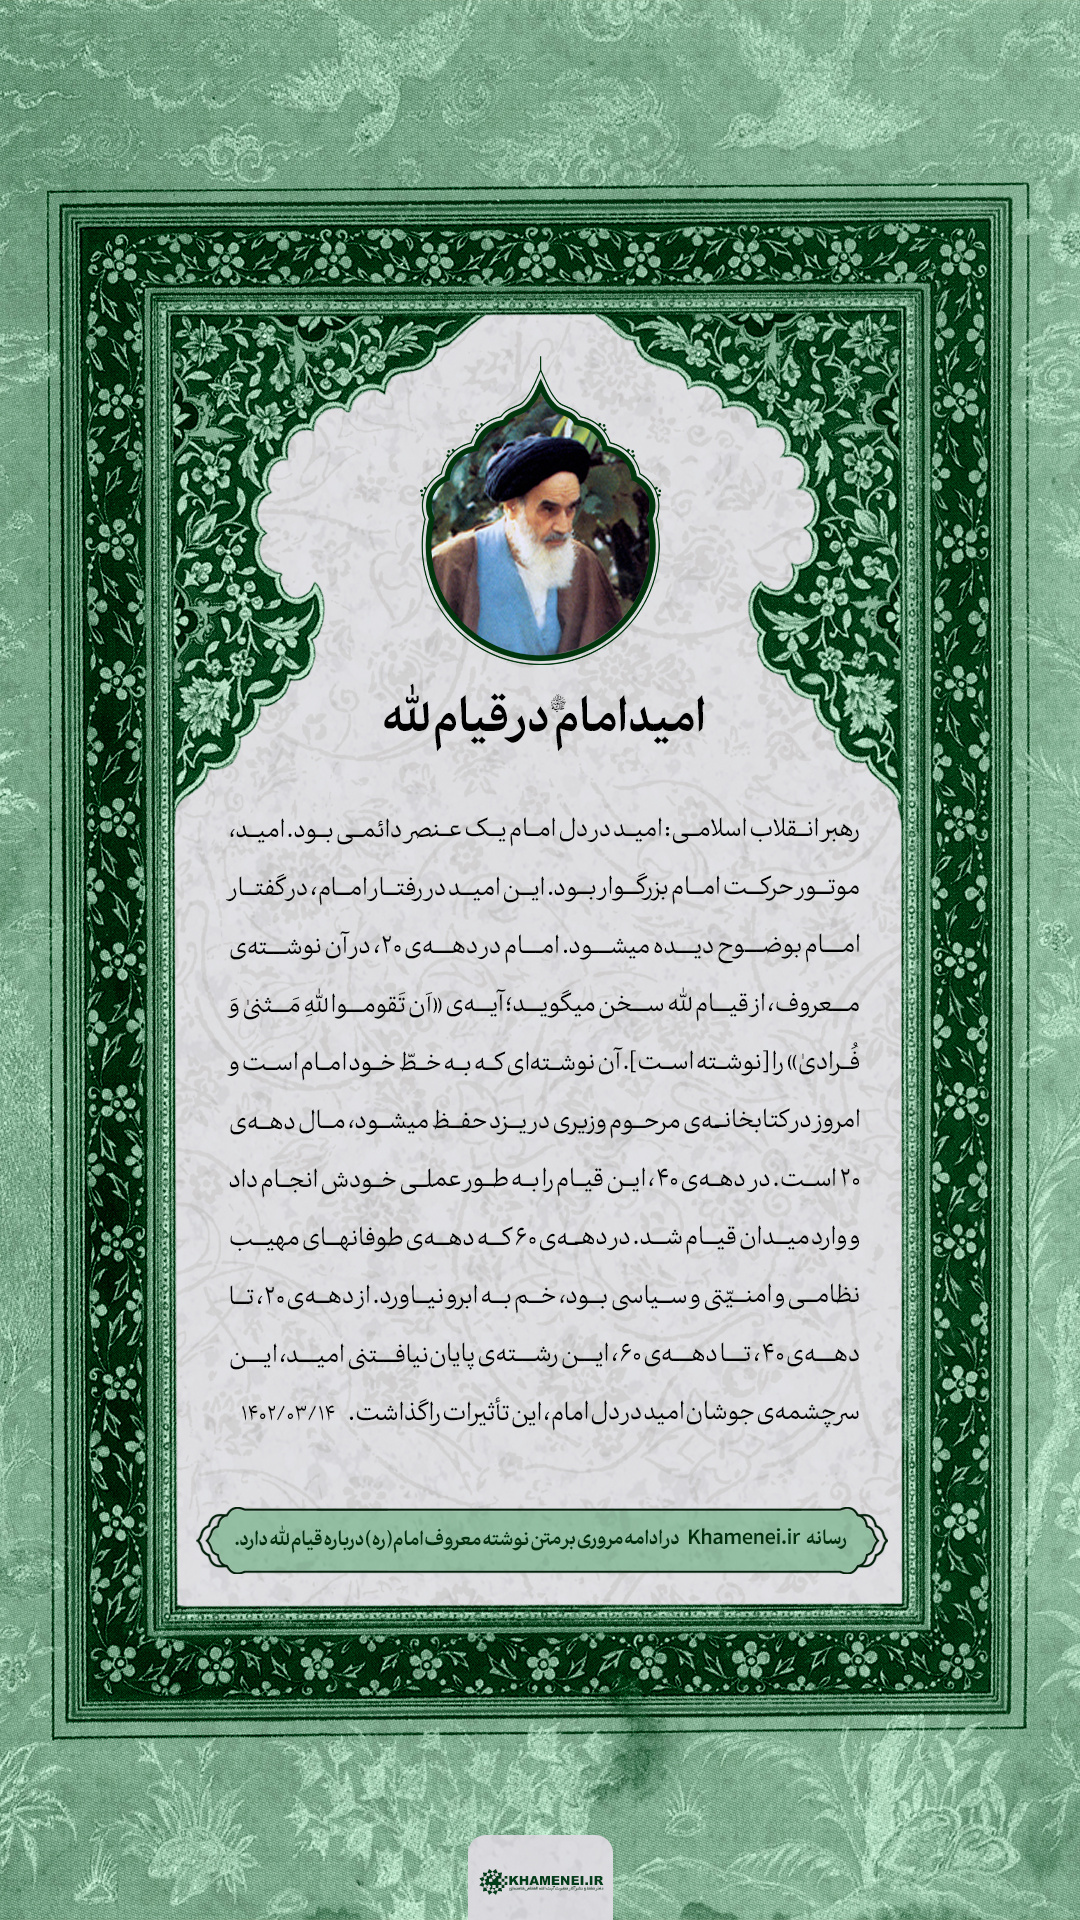 امید امام در قیام لله
رهبر انقلاب اسلامی: امید در دل امام یک عنصر دائمی بود. امید،
موتور حرکت امام بزرگوار بود. این امید در رفتار امام، در گفتار
امام بوضوح دیده میشود. امام در دهه‌ی ۲۰، در آن نوشته‌ی
معروف، از قیام لله سخن میگوید؛ آیه‌ی «اَن تَقوموا لِلّهِ مَثنیٰ وَ
فُرادیٰ» را [نوشته است]. آن نوشته‌ای که به خطّ خود امام است و
امروز در کتابخانه‌ی مرحوم وزیری در یزد حفظ میشود، مال دهه‌ی
۲۰ است. در دهه‌ی ۴۰، این قیام را به طور عملی خودش انجام داد
و وارد میدان قیام شد. در دهه‌ی ۶۰ که دهه‌ی طوفانهای مهیب
نظامی و امنیّتی و سیاسی بود، خم به ابرو نیاورد. از دهه‌ی ۲۰، تا
دهه‌ی ۴۰، تا دهه‌ی ۶۰، این رشته‌ی پایان‌نیافتنی امید، این
سرچشمه‌ی جوشان امید در دل امام، این تأثیرات را گذاشت. ۱۴۰۲/۰۳/۱۴
رسانه Khamenei.ir در ادامه مروری بر متن نوشته معروف امام(ره) درباره قیام لله دارد.
KHAMENEI.IR